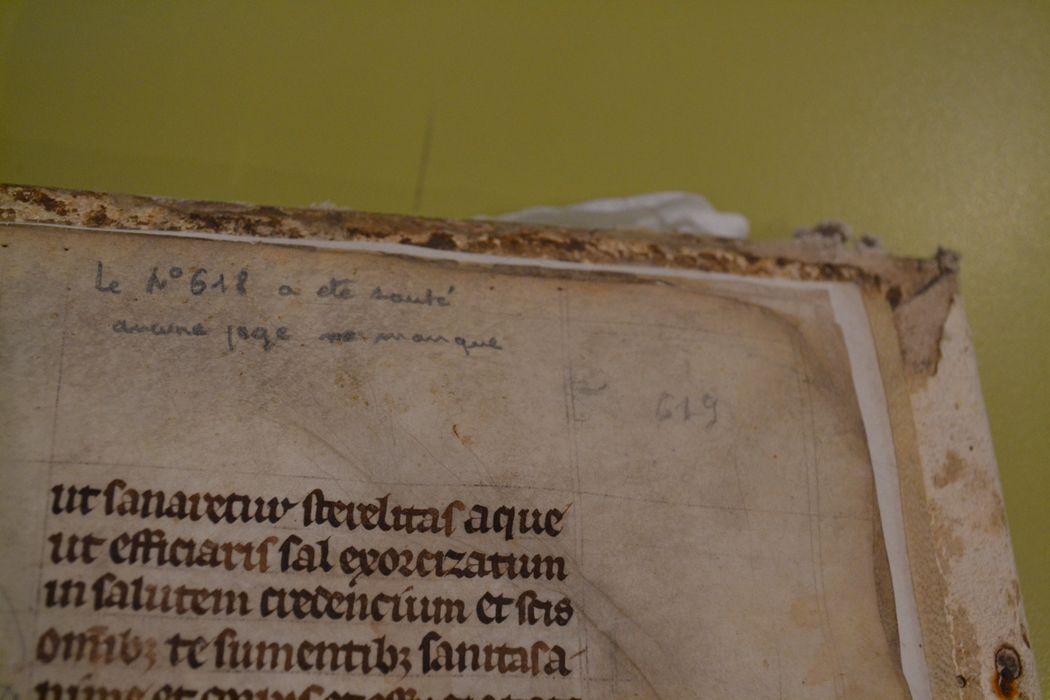 Le No 618 a ete sauté
aucune page ne manque
619
ut sanaretur sterelitas aque
ut efficiaris sal exorcizatum
in salutem credencium et scis
omibꝫ te sumentibꝫ sanitas a
nime et